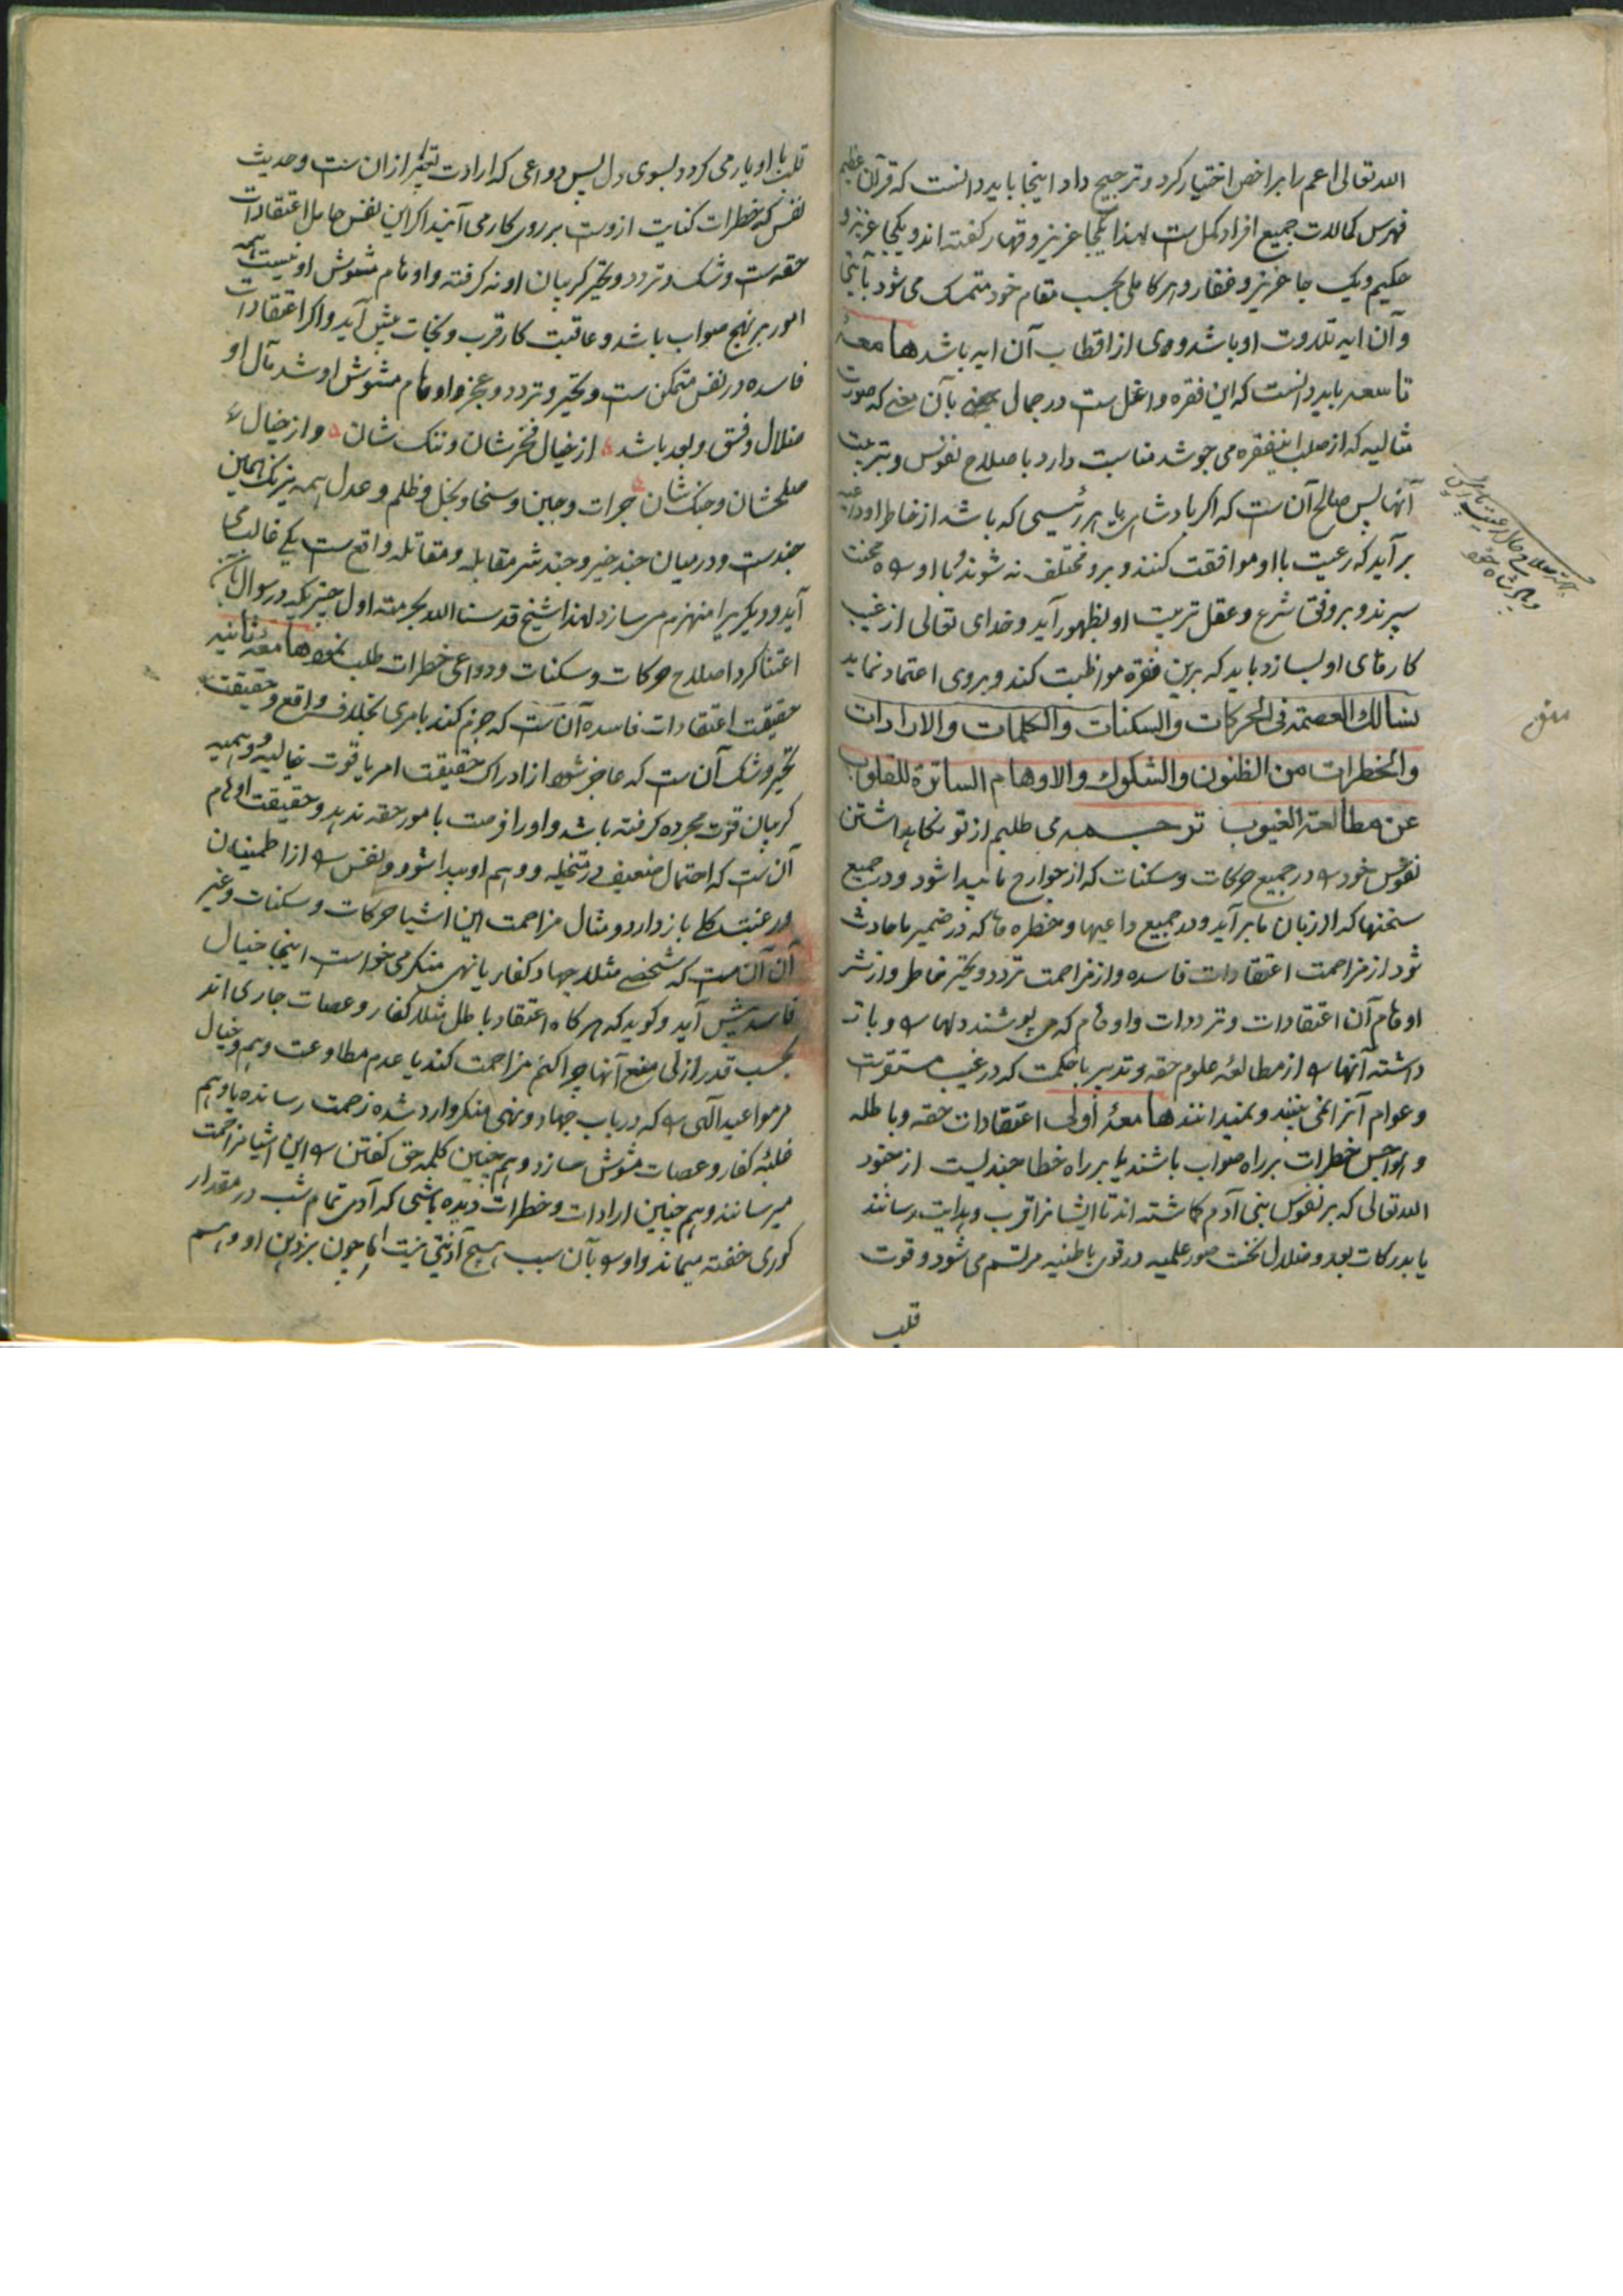 الله تعالی اعم را بر اخص اختیار کرد و ترجیح داد اینجا باید دانست که قرآن عظیم
فهرس کمالات جمیع افراد کمل ست لهذا یکجا عزیز و قهار گفته اند و یکجا عزیز و
حکیم و یک جا عزیز و غفار و هر کاملی بحسب مقام خود متمسک می شود بآیتی
و آن ایه تلاوت او باشد و وی از اقطاب آن ایه باشد هامعهٔ
تاسعه باید دانست که این فقره داخل ست در جمال بآن معنی که صورت
مثالیه که از صلب این فقره می جوشد مناسبت دارد باصلاح نفوس و تربیت
آنها پس صالح آن ست که اگر بادشاهی یا هر رئیسی که باشد از خاطر او داعیه
بر آید که رعیت با او موافقت کنند و برو مختلف نه شوند و با او راه محبت
سپرند و بر وفق شرع و عقل تربیت او بظهور آید و خدای تعالی از غیب
کارهای او بسازد باید که برین فقره مواظبت کند و بر وی اعتماد نماید
نسالك العصمة فی الحرکات والسکنات والکلمات والارادات
والخطرات من الظنون والشکوك والاوهام الساترة للقلوب
عن مطالعة الغیوب ترجمه می طلبم از تو نگاهداشتن
نفوس خود را در جمیع حرکات و سکنات که از جوارح ما پیدا شود و در جمیع
سخنها که از زبان ما بر آید و در جمیع داعیها و خطره ها که در ضمیر ما حادث
شود از مزاحمت اعتقادات فاسده و از مزاحمت تردد و تحیر خاطر و از نشر
اوهام آن اعتقادات و ترددات و اوهام که می پوشند دلها را و باز
داشته آنها را از مطالعهٔ علوم حقه و تدبیر باحکمت که در غیب مستقرست
و عوام آنرا نمی بینند و نمیدانند هامعهٔ اولی اعتقادات حقه و باطله
و هواجس خطرات بر راه صواب باشند یا بر راه خطا جندیست از جنود
الله تعالی که بر نفوس بنی آدم گماشته اند تا ایشانرا قرب و هدایت رسانند
یا بدرکات بعد و ضلال نخست صور علمیه در قوی باطنیه مرتسم می شود و قوت
قلب
قلب با او یار می گردد بسوی دل پس دواعی که ارادت تعبیر از ان ست و حدیث
نفس که خطرات کنایت ازوست بر روی کار می آیند اگر این نفس حامل اعتقادات
حقه ست و شک و تردد و تحیر گریبان او نه گرفته و اوهام مشوش او نیست همه
امور بر نهج صواب باشد و عاقبت کار قرب و نجات پیش آید و اگر اعتقادات
فاسده در نفس متمکن ست و تحیر و تردد و عجز و اوهام مشوش او شد مآل او
ضلال و فسق و بعد باشد از خیالی فخر شان و ننگ شان و از خیالی
صلح شان و جنگ شان جرات و جبن و سخا و بخل و ظلم و عدل همه نیرنگ همین
جندست و در میان جند خیر و جند شر مقابله و مقاتله واقع ست یکی غالب می
آید و دیگریرا منهزم می سازد لهذا شیخ قدسنا الله بحرمته اول چیزیکه در سوال بآن
اعتنا کرد اصلاح حرکات و سکنات و دواعی خطرات طلب نمود هامعهٔ ثانیه
حقیقت اعتقادات فاسده آن ست که جزم کند بامری بخلاف واقع و حقیقت
تحیر و شک آن ست که عاجز شود از ادراک حقیقت امر یا قوت خیالیه و وهمیه
گریبان قوت مجرده گرفته باشد و او را فرصت بامور حقه ندهد و حقیقت اوهام
آن ست که احتمال ضعیف در متخیله و وهم او پیدا شود و نفس را از اطمینان
و رغبت کلی باز دارد و مثال مزاحمت این اشیا حرکات و سکنات و غیر
آن آن ست که شخصی مثلا جهاد کفار یا نهی منکر می خواست اینجا خیال
فاسد پیش آید و گوید که هر گاه اعتقاد باطل مثلا کفار و عصات جاری اند
بحسب قدر ازلی منع آنها چرا کنم مزاحمت کند یا عدم مطاوعت وهم و خیال
مر مواعید الهی را که در باب جهاد و نهی منکر وارد شده زحمت رسانده یا وهم
غلبهٔ کفار و عصات مشوش سازد و هم چنین کلمه حق گفتن را این اشیا مزاحمت
میرسانند و هم چنین ارادات و خطرات دیده باشی که آدمی تمام شب در مقدار
گوری خفته میماند و او را بآن سبب هیچ اذیتی نیست اما چون بر ذهن او وهم